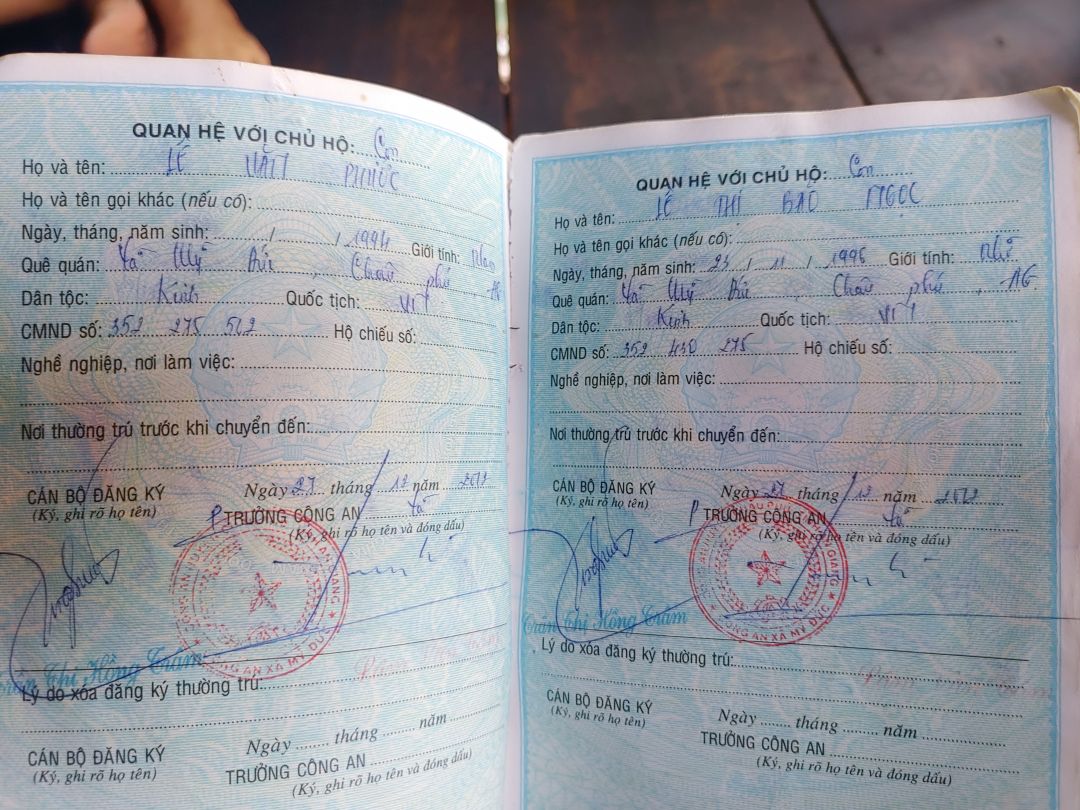 QUAN HỆ VỚI CHỦ HỘ: Con
Họ và tên: LÊ PHÚC
Họ và tên gọi khác (nếu có):
Ngày, tháng, năm sinh: / / 1994 Giới tính: Nam
Quê quán: Xã Mỹ Đức, Châu phú, AG
Dân tộc: Kinh Quốc tịch: VN
CMND số: 352 275 502 Hộ chiếu số:
Nghề nghiệp, nơi làm việc:
Nơi thường trú trước khi chuyển đến:
CÁN BỘ ĐĂNG KÝ
(Ký, ghi rõ họ tên)
Ngày 27 tháng 12 năm 2012
TRƯỞNG CÔNG AN Xã
(Ký, ghi rõ họ tên và đóng dấu)
CÔNG AN XÃ MỸ ĐỨC
Trần Thị Hồng Trâm
Lý do xóa đăng ký thường trú:
Ngày tháng năm
CÁN BỘ ĐĂNG KÝ
(Ký, ghi rõ họ tên)
TRƯỞNG CÔNG AN
(Ký, ghi rõ họ tên và đóng dấu)
QUAN HỆ VỚI CHỦ HỘ: Con
Họ và tên: LÊ THỊ BẢO NGỌC
Họ và tên gọi khác (nếu có):
Ngày, tháng, năm sinh: 23 / 11 / 1996 Giới tính: Nữ
Quê quán: Xã Mỹ Đức, Châu phú, AG
Dân tộc: Kinh Quốc tịch: VN
CMND số: 352 430 275 Hộ chiếu số:
Nghề nghiệp, nơi làm việc:
Nơi thường trú trước khi chuyển đến:
CÁN BỘ ĐĂNG KÝ
(Ký, ghi rõ họ tên)
Ngày 27 tháng 12 năm 2012
TRƯỞNG CÔNG AN Xã
(Ký, ghi rõ họ tên và đóng dấu)
CÔNG AN XÃ MỸ ĐỨC
Trần Thị Hồng Trâm
Lý do xóa đăng ký thường trú:
CÁN BỘ ĐĂNG KÝ
(Ký, ghi rõ họ tên)
Ngày tháng năm
TRƯỞNG CÔNG AN
(Ký, ghi rõ họ tên và đóng dấu)